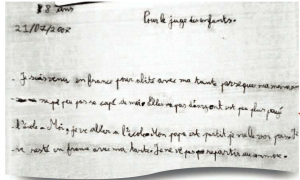 8 ans
21/07/2008
Pour le juge des enfants.
Je suis venu en france pour abité avec ma tante parseque ma maman
na pé pas se capé de moi. Elle na pas d'argent
l'école. Moi, je ve aller a l'école. Mon papa est partit je ne le voi pas. Je
ve resté en france avec ma tante. Je ne ve pas repartir au